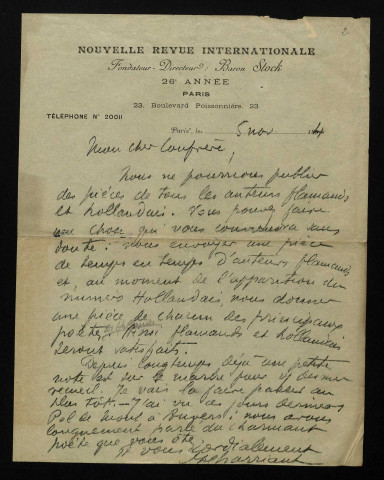 2
NOUVELLE REVUE INTERNATIONALE
Fondateur-Directeur: Baron Stock
26e ANNÉE
PARIS
23, Boulevard Poissonnière, 23
TÉLÉPHONE N° 20011
Paris, le 5 nov
Mon cher Confrère,
Nous ne pourrions publier
des pièces de tous les auteurs flamands
et hollandais. Vous pouvez faire
une chose qui vous conviendra sans
doute: nous envoyer une pièce
de temps en temps d'auteurs flamands
et, au moment de l'apparition du
numéro Hollandais, nous donner
une pièce de chacun des principaux
poètes. Ainsi flamands et hollandais
seront satisfaits.
Depuis longtemps déjà une petite
note est sur le marbre pour votre dernier
recueil. Je vais la faire passer au
plus tôt. — J'ai vu ces jours derniers
Pol de Mont à Anvers: nous avons
longuement parlé du charmant
poète que vous êtes.
Je vous cordialement